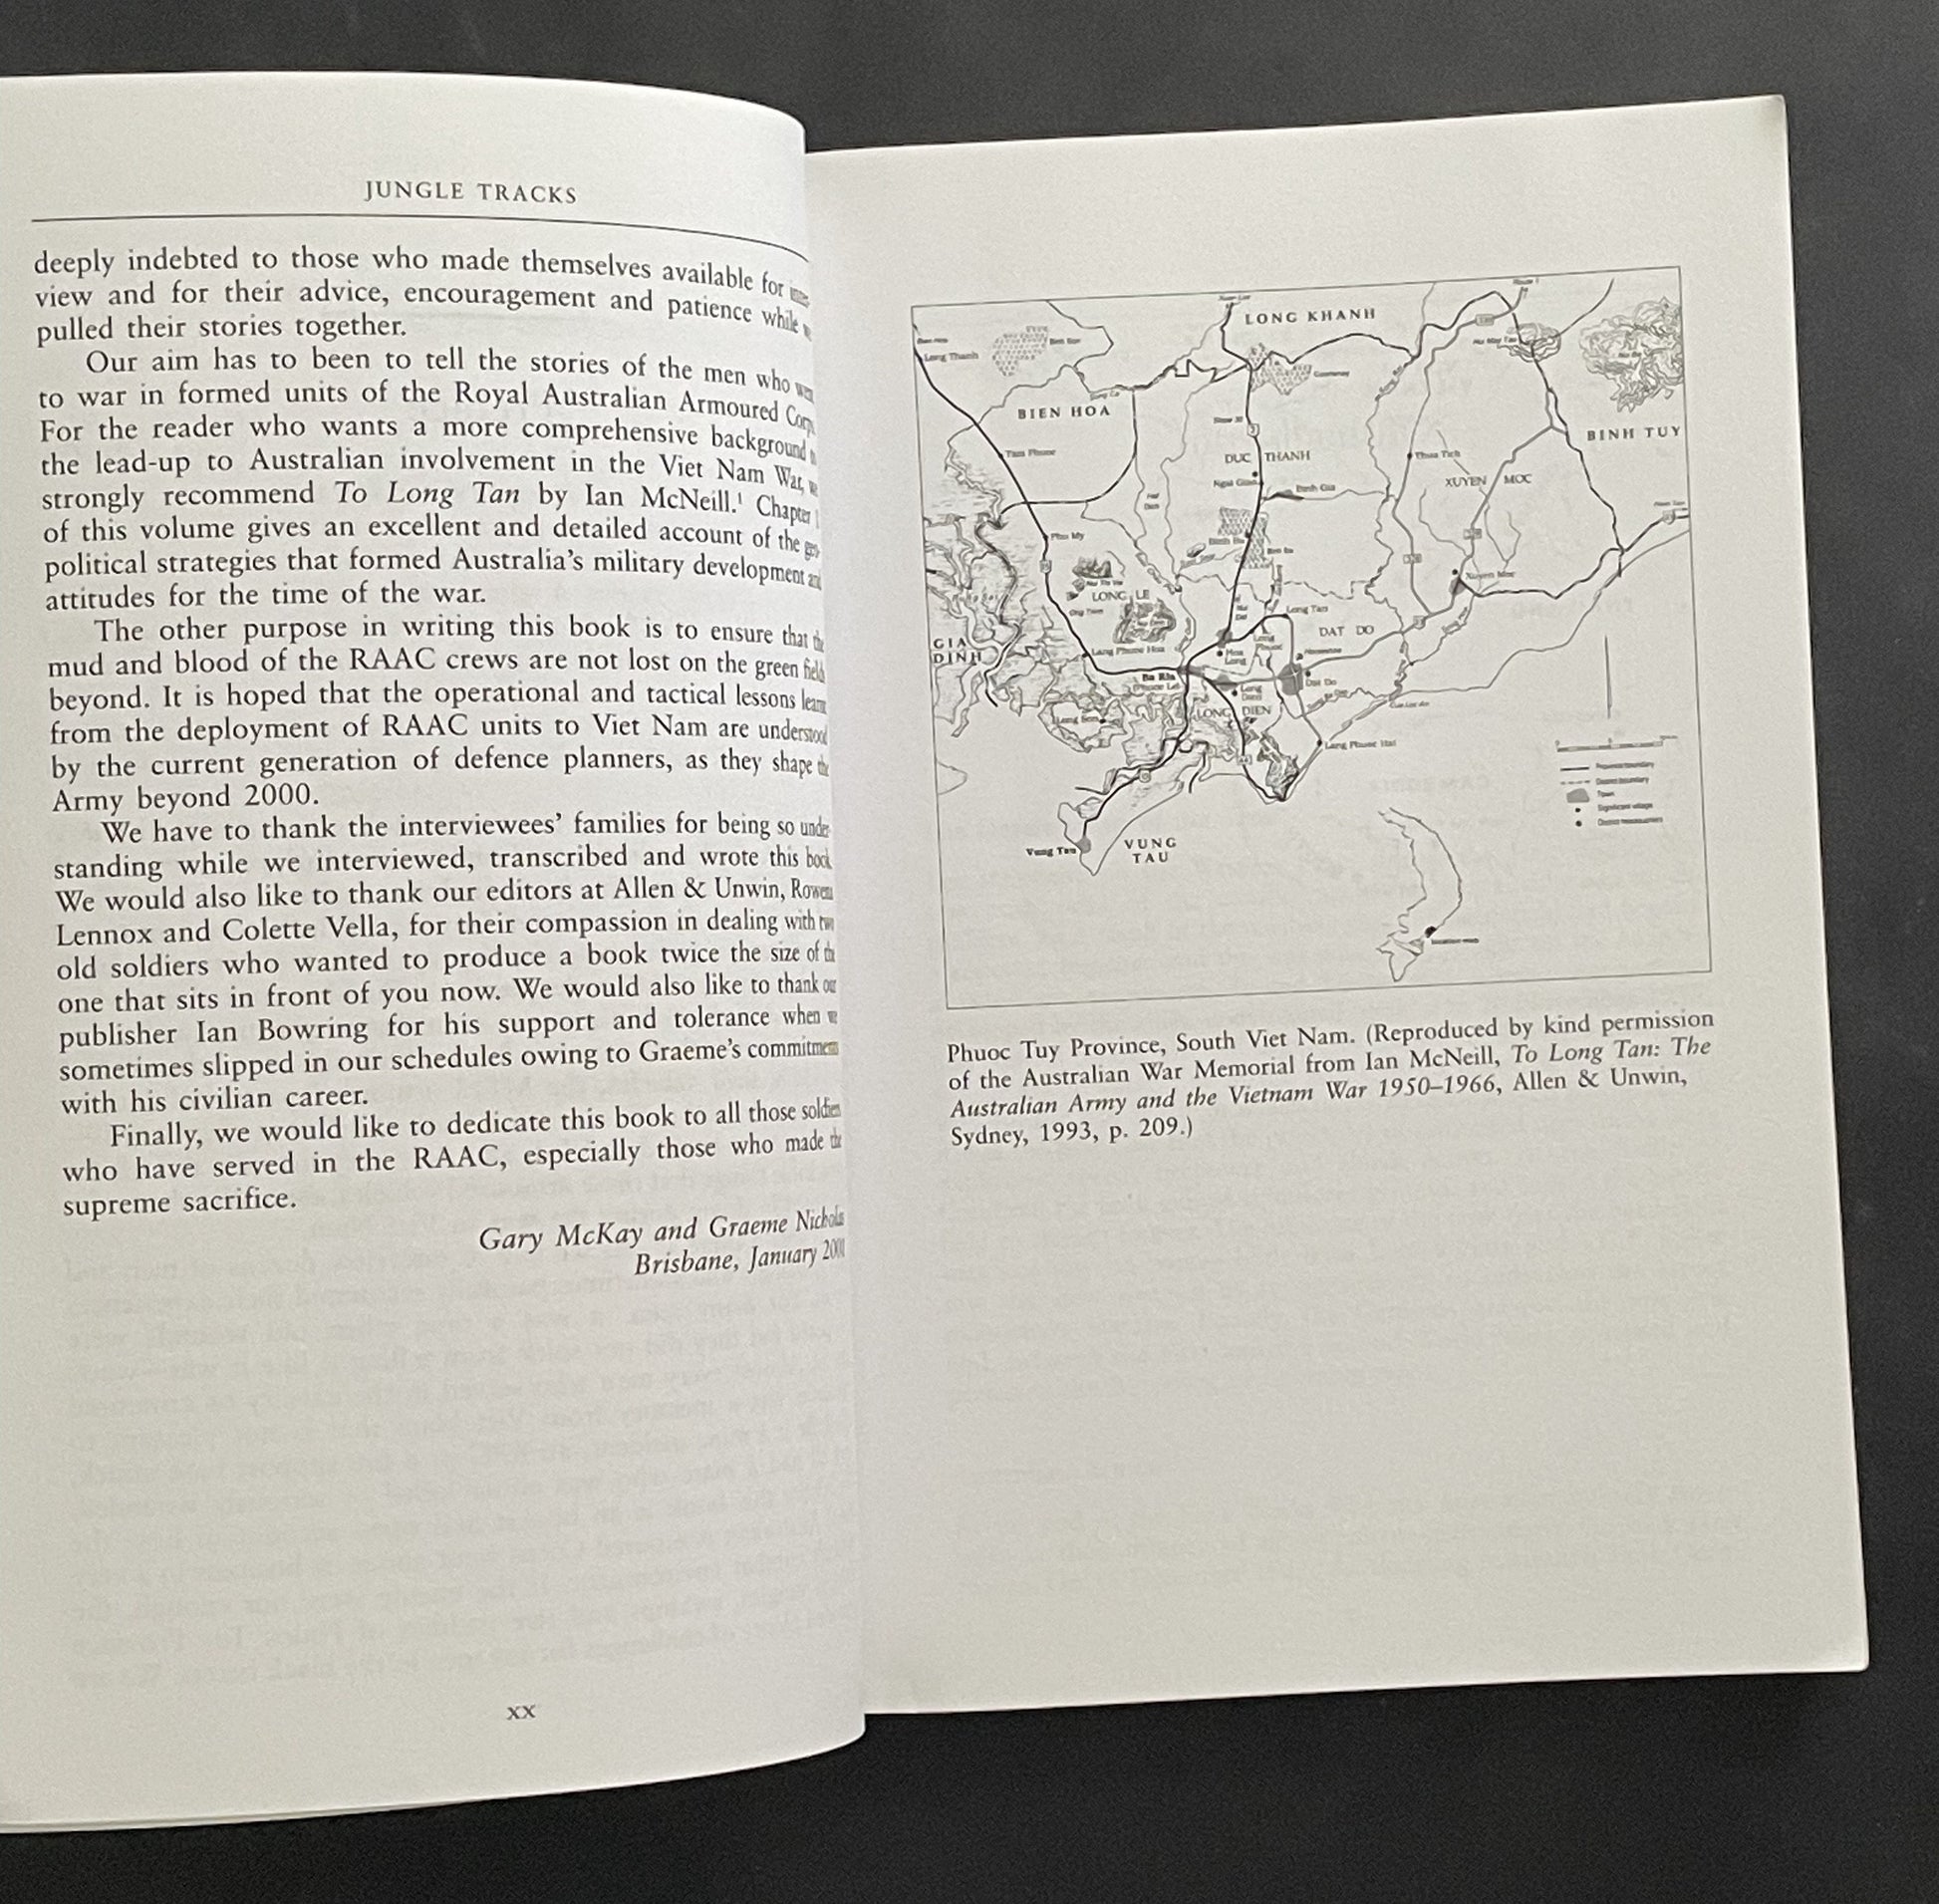 JUNGLE TRACKS
deeply indebted to those who made themselves available for
view and for their advice, encouragement and patience while
pulled their stories together.
Our aim has to been to tell the stories of the men who
to war in formed units of the Royal Australian Armoured Corp
For the reader who wants a more comprehensive background
the lead-up to Australian involvement in the Viet Nam War,
strongly recommend To Long Tan by Ian McNeill.¹ Chapter
of this volume gives an excellent and detailed account of the
political strategies that formed Australia's military development
attitudes for the time of the war.
The other purpose in writing this book is to ensure that the
mud and blood of the RAAC crews are not lost on the green fields
beyond. It is hoped that the operational and tactical lessons
from the deployment of RAAC units to Viet Nam are understood
by the current generation of defence planners, as they shape the
Army beyond 2000.
We have to thank the interviewees' families for being so under-
standing while we interviewed, transcribed and wrote this book
We would also like to thank our editors at Allen & Unwin, Rowena
Lennox and Colette Vella, for their compassion in dealing with two
old soldiers who wanted to produce a book twice the size of the
one that sits in front of you now. We would also like to thank our
publisher Ian Bowring for his support and tolerance when we
sometimes slipped in our schedules owing to Graeme's commitments
with his civilian career.
Finally, we would like to dedicate this book to all those soldiers
who have served in the RAAC, especially those who made the
supreme sacrifice.
Gary McKay and Graeme Nicholas
Brisbane, January
xx
LONG KHANH
Long Thanh
BIEN HOA
BINH TUY
Tam Phuoc
DUC THANH
Thua Tich
Ngai Giao
Binh Gia
XUYEN MOC
Phu My
Binh Ba
Xuyen Moc
LONG LE
Long Tan
DAT DO
GIA
DINH
Lang Phuoc Hoa
Hoa
Long
Long
Phuoc
Ba Ria
(Phuoc Le)
Dat Do
Long
Dien
Long Son
LONG DIEN
Lang Phuoc Hai
Province boundary
District boundary
Town
Significant village
District headquarters
Vung Tau
VUNG
TAU
Phuoc Tuy Province, South Viet Nam. (Reproduced by kind permission
of the Australian War Memorial from Ian McNeill, To Long Tan: The
Australian Army and the Vietnam War 1950–1966, Allen & Unwin,
Sydney, 1993, p. 209.)